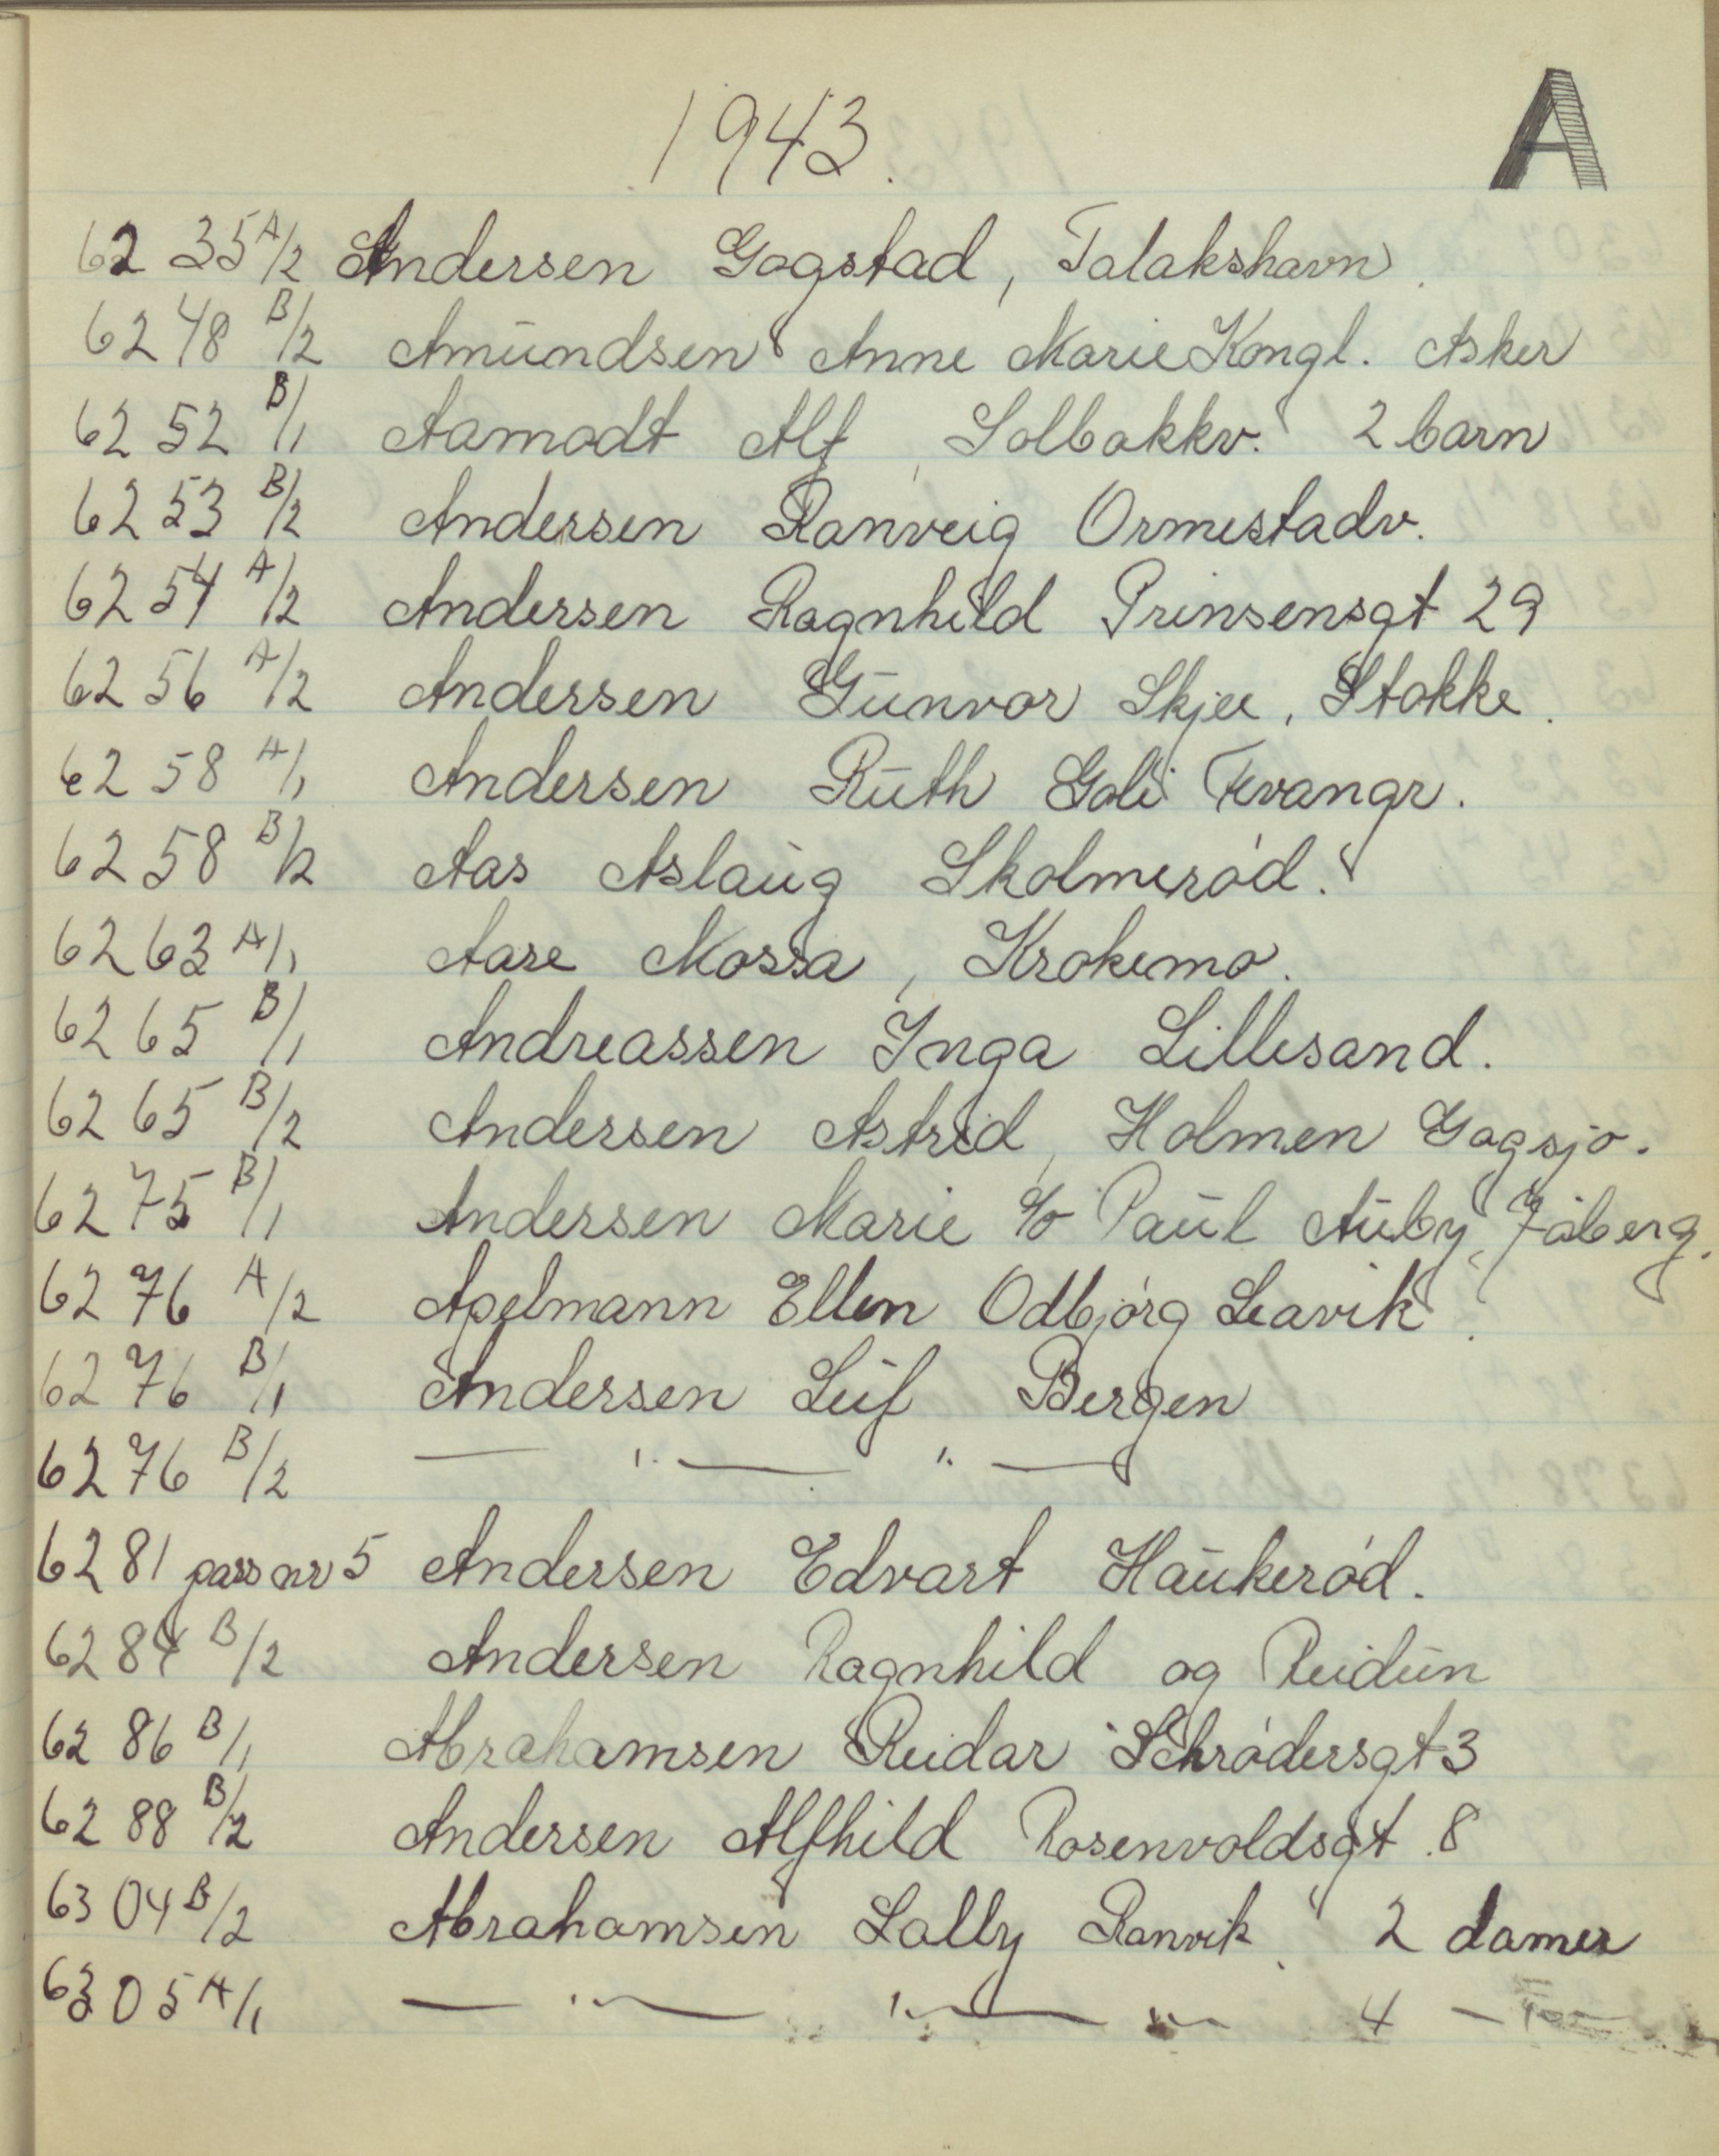 1943.
A
62 35 A/2 Andersen Gogstad, Talakshavn.
62 48 B/2 Amundsen Anne Marie Kongl. Asker
62 52 B/1 Aamodt Alf, Solbakkv. 2 barn
62 53 B/2 Andersen Ranveig Ormestadv.
62 54 A/2 Andersen Ragnhild Prinsensgt 29
62 56 A/2 Andersen Gunvor Skjee, Stokke.
62 58 A/1 Andersen Ruth Goli Tevangr.
62 58 B/2 Aas Aslaug Skolmerød.
62 63 A/1 Aase Mossa, Krokemo.
62 65 B/1 Andreassen Inga Lillesand.
62 65 B/2 Andersen Astrid, Holmen Gogsjø.
62 75 B/1 Andersen Marie c/o Paul Auby, Jåberg.
62 76 A/2 Apelmann Ellen Odbjørg Leavik.
62 76 B/1 Andersen Leif Bergen
62 76 B/2 — " — " —
62 81 pass nr 5 Andersen Edvart Haukerød.
62 84 B/2 Andersen Ragnhild og Reidun
62 86 B/1 Abrahamsen Reidar Schrødersgt 3
62 88 B/2 Andersen Alfhild Rosenvoldsgt. 8
63 04 B/2 Abrahamsen Lally Ranvik. 2 damer
63 05 A/1 — " — " — " — 4 —